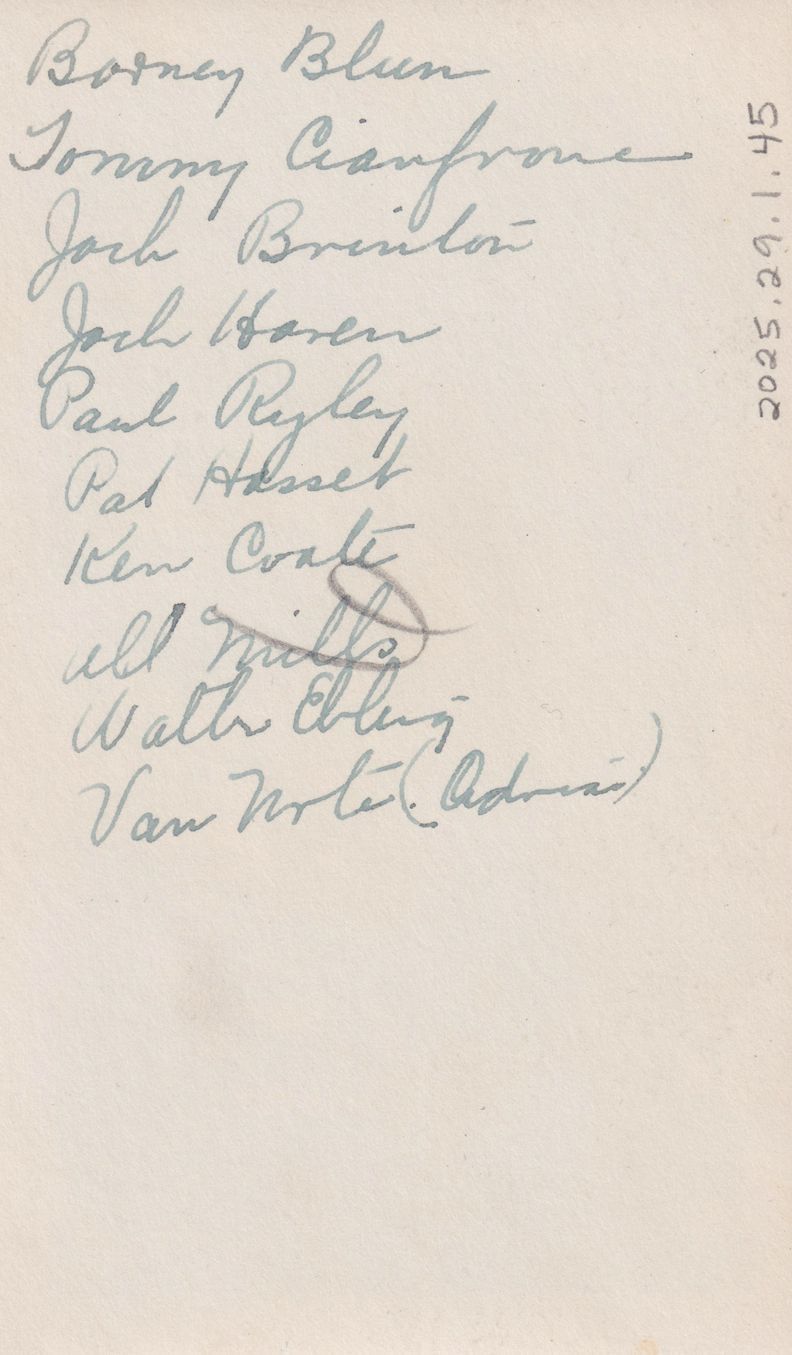 Barney Blum
Tommy Cianfrone
Jack Brinton
Jack Haren
Paul Ryley
Pat Hasset
Ken Coate
Mills
Walter Ebling
Van Note (Advisi)
2025.29.1.45